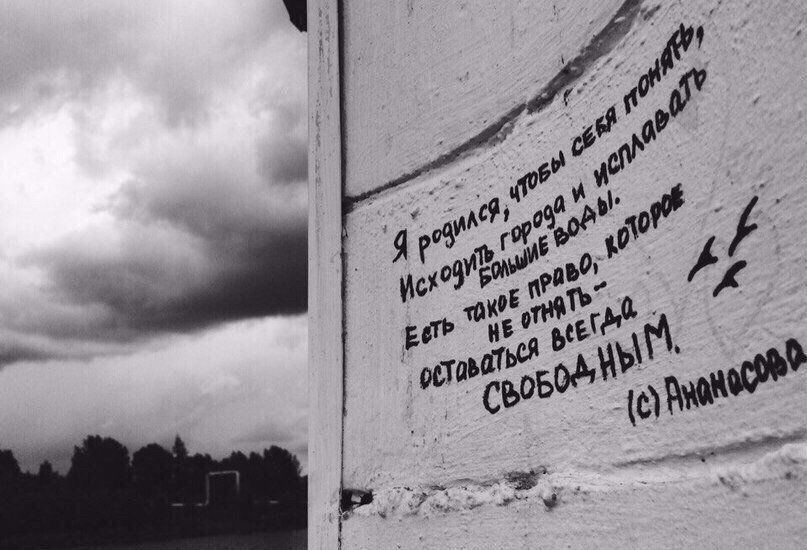 Я родился, чтобы себя понять,
Исходить города и исплавать
большие воды.
Есть такое право, которое
не отнять –
оставаться всегда
СВОБОДНЫМ.
(с) Ананасова